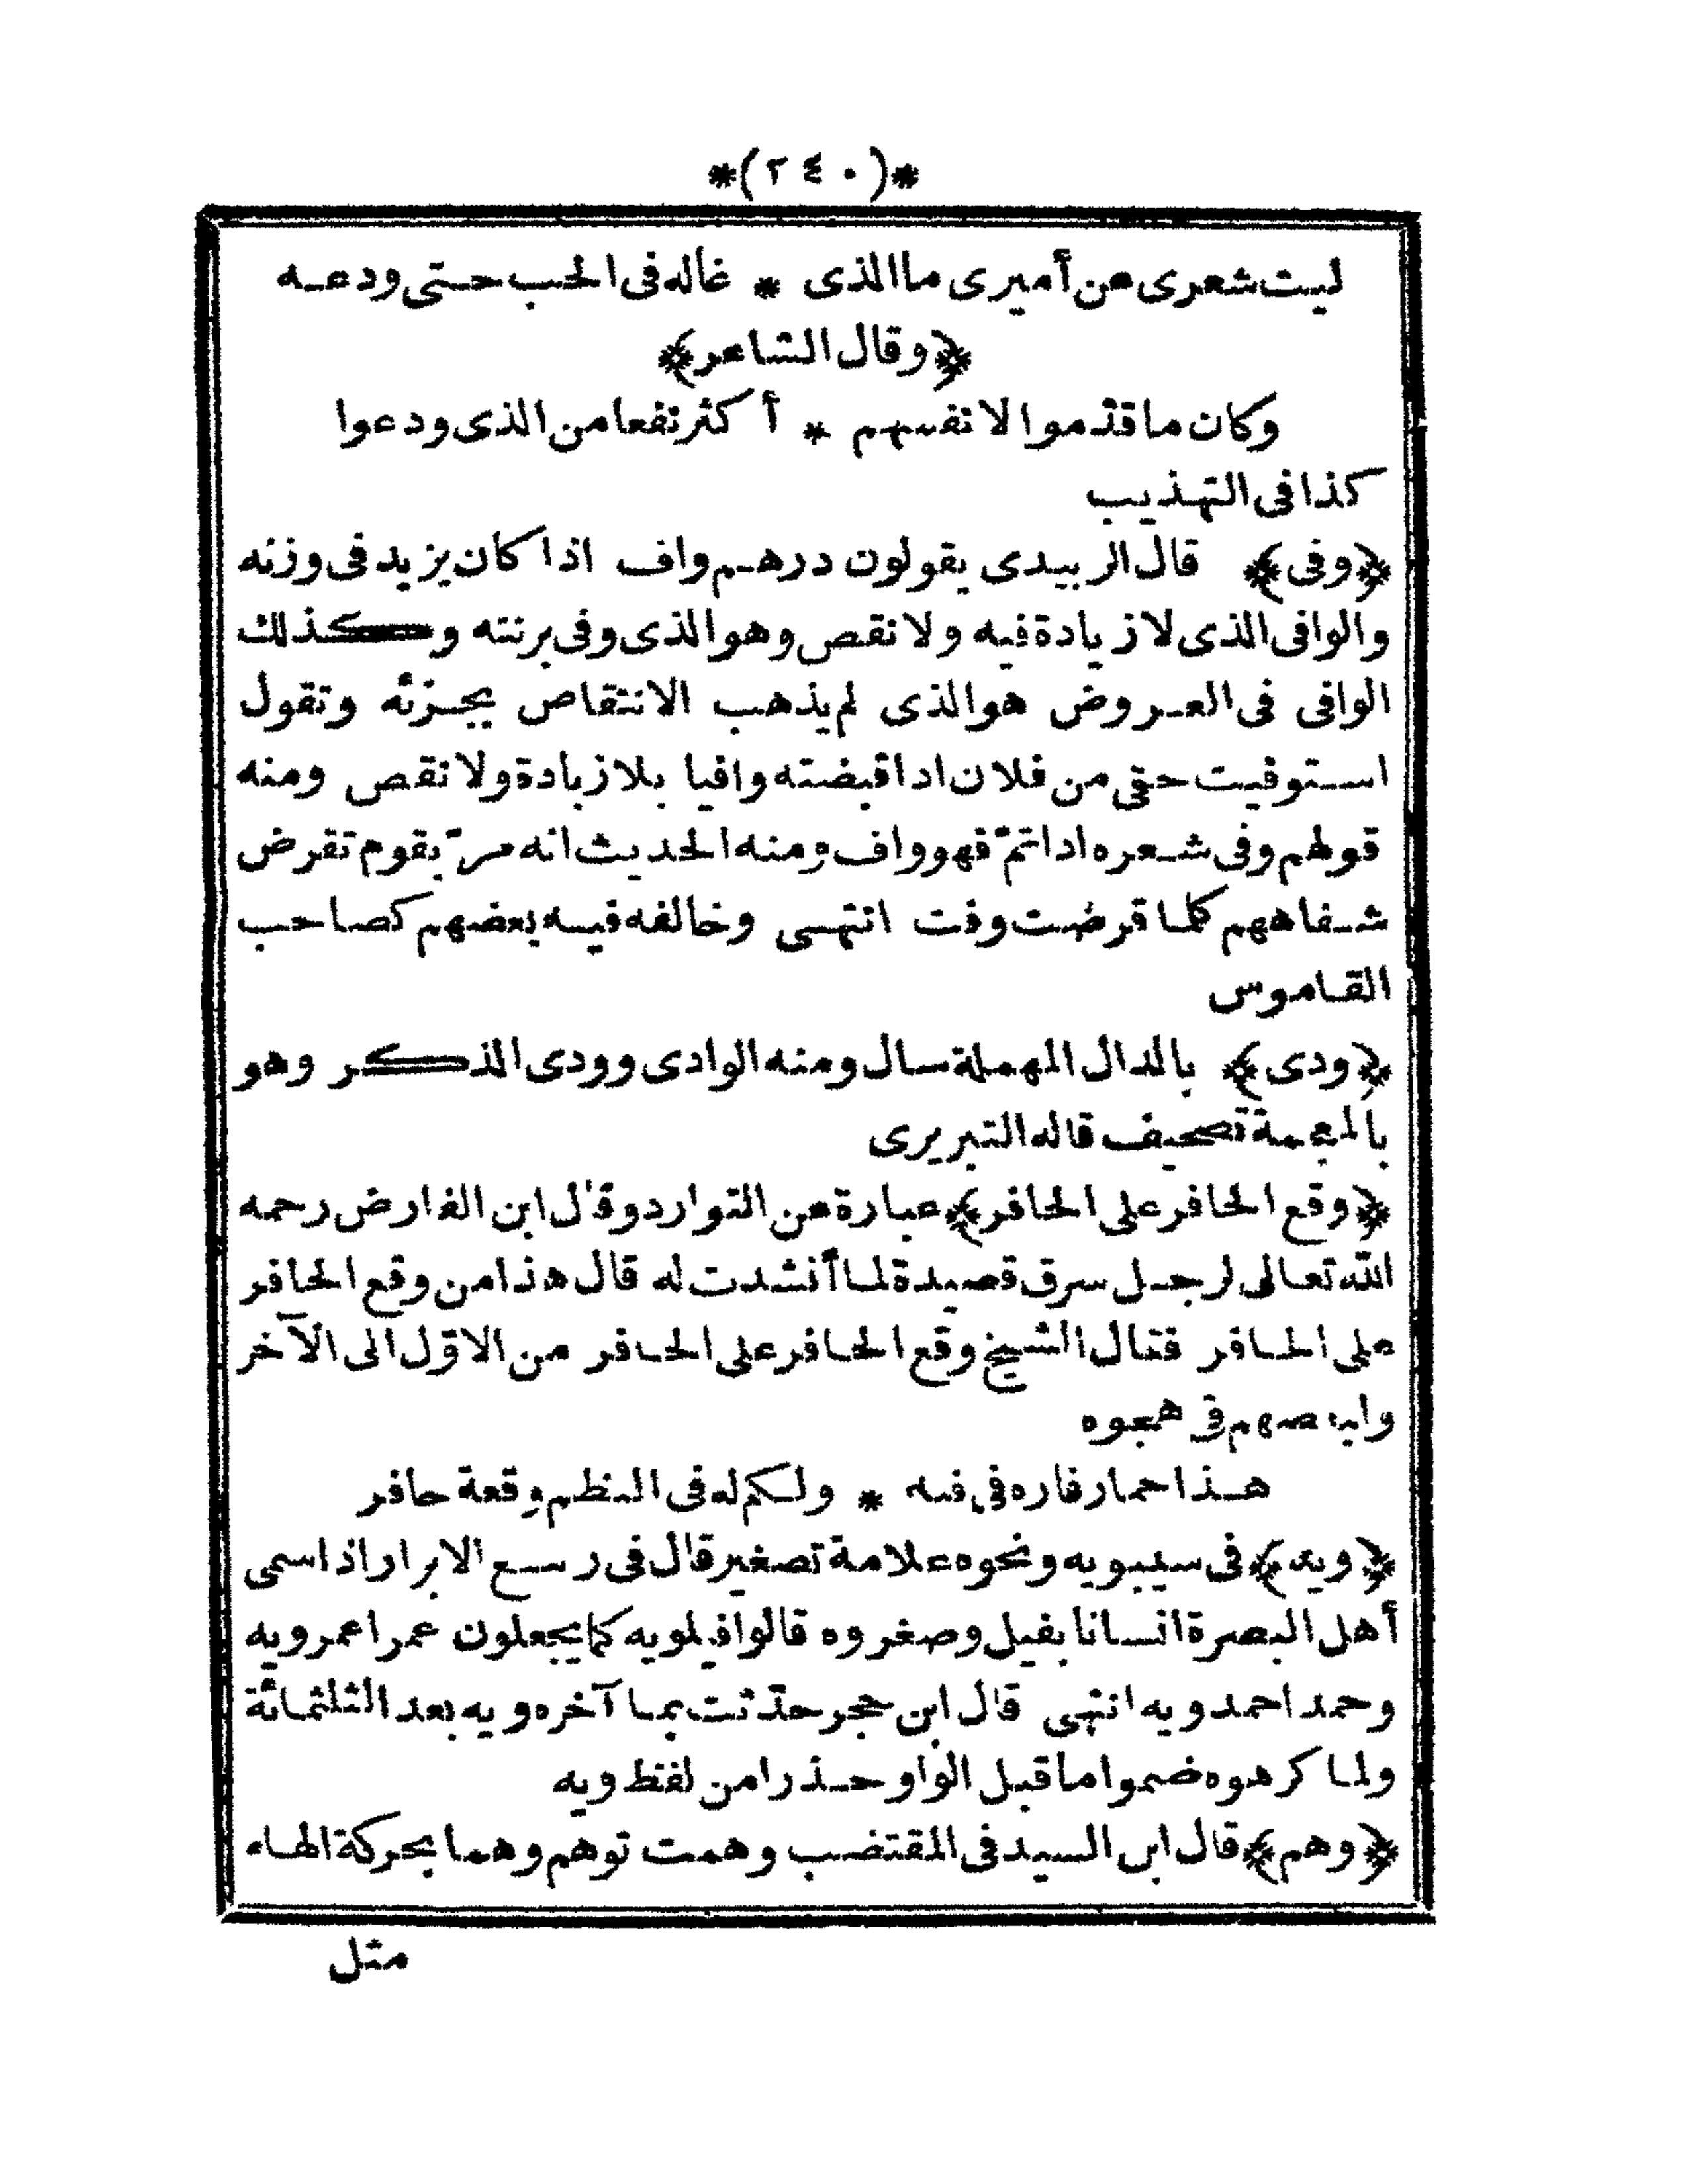 *(٢٤٠)*
ليت شعرى عن أميرى ما الذى * غاله فى الحب حتى ودعه
﴿وقال الشاعر﴾
وكان ما قدّموا لانفسهم * أكثر نفعا من الذى ودعوا
كذا فى التهذيب
﴿وفى﴾ قال الزبيدى يقولون درهم واف اذا كان يزيد فى وزنه
والوافى الذى لا زيادة فيه ولا نقص وهو الذى وفى برنته وكذلك
الوافى فى العروض هو الذى لم يذهب الانتقاص بجزئه وتقول
استوفيت حقى من فلان ادا قبضته وافيا بلا زيادة ولا نقص ومنه
قولهم وفى شعره ادا تمّ فهو واف ومنه الحديث انه مرّ بقوم تقرض
شفاههم كلما قرضت وفت انتهى وخالفه فيه بعضهم كصاحب
القاموس
﴿ودى﴾ بالدال المهملة سال ومنه الوادى وودى الذكر وهو
بالمعجمة تصحيف قاله التبريرى
﴿وقع الحافر على الحافر﴾ عبارة عن التوارد وقال ابن الفارض رحمه
الله تعالى لرجل سرق قصيدة لما أنشدت له قال هذا من وقع الحافر
على الحافر فقال الشيخ وقع الحافر على الحافر من الاوّل الى الآخر
صهم فى هجوه
هذا حمار فاره فى فنه * ولكم له فى النظم وقعة حافر
﴿ويه﴾ فى سيبويه ونحوه علامة تصغير قال فى ربيع الابرار اذا سمى
أهل البصرة انسانا بفيل وصغروه قالوا فيلويه كما يجعلون عمرا عمرويه
وحمد احمدويه انتهى قال ابن حجر حدّثت بما آخره ويه بعد الثلثمائة
ولما كرهوه ضموا ما قبل الواو حذرا من لفظ ويه
﴿وهم﴾ قال ابن السيد فى المقتضب وهمت توهم وهما بحركة الهاء
مثل